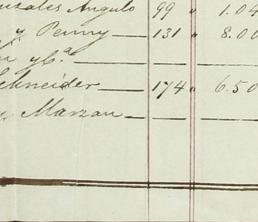 Gonzales Angulo 99 " 1.04
y Penny — 131 " 8.00
y Ca. —
Schneider — 174 " 6.50
y Marzan —